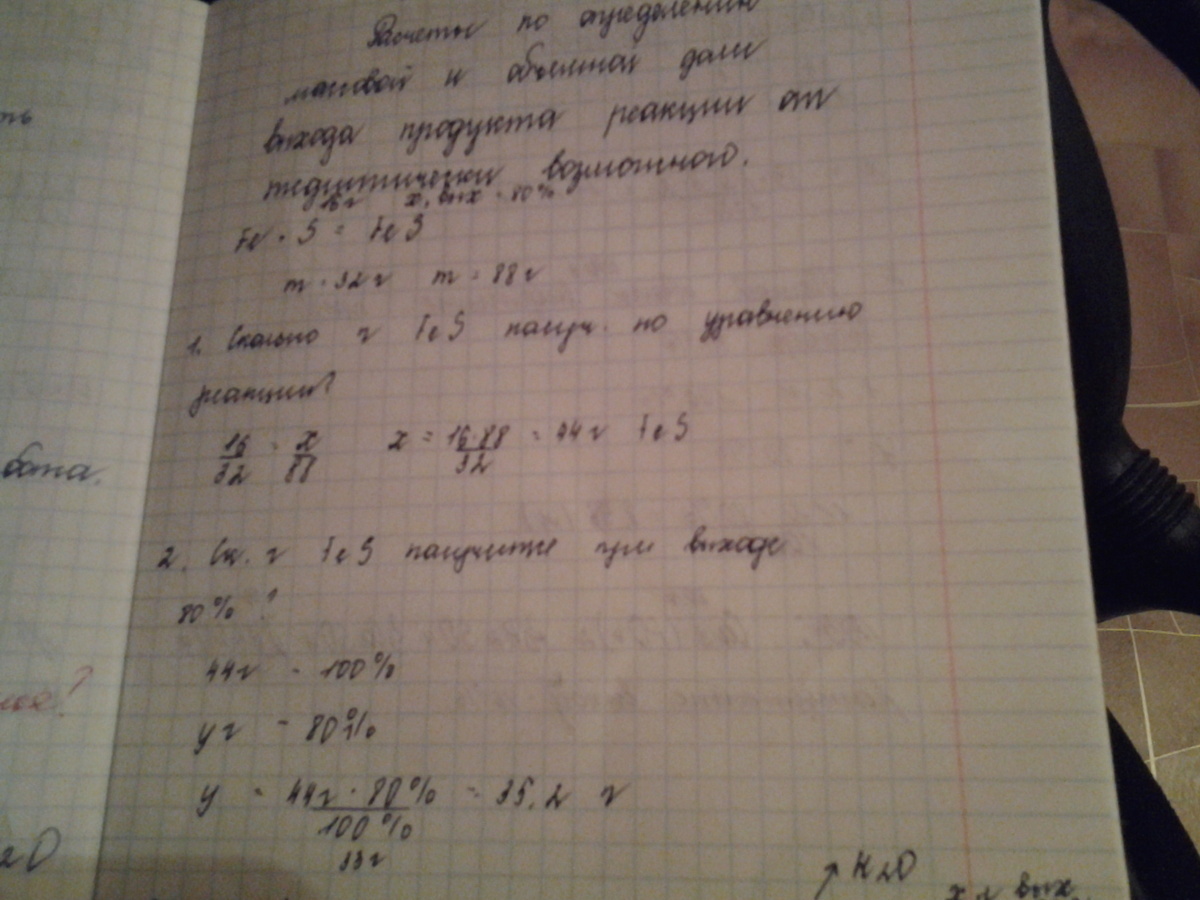 ть
Расчеты по определению
массовой и объемной доли
выхода продукта реакции от
теоретически возможного.
16 г x, вых = 80%
Fe + S = FeS
m = 32 г m = 88 г
1. Сколько г FeS получ. по уравнению
реакции?
16/32 = x/88 x = 16·88/32 = 44 г FeS
бота.
2. Ск. г FeS получится при выходе
80% ?
44 г - 100%
у г - 80%
у = 44г · 80%/100% = 35,2 г
33 г
2O
H2O
x г вых